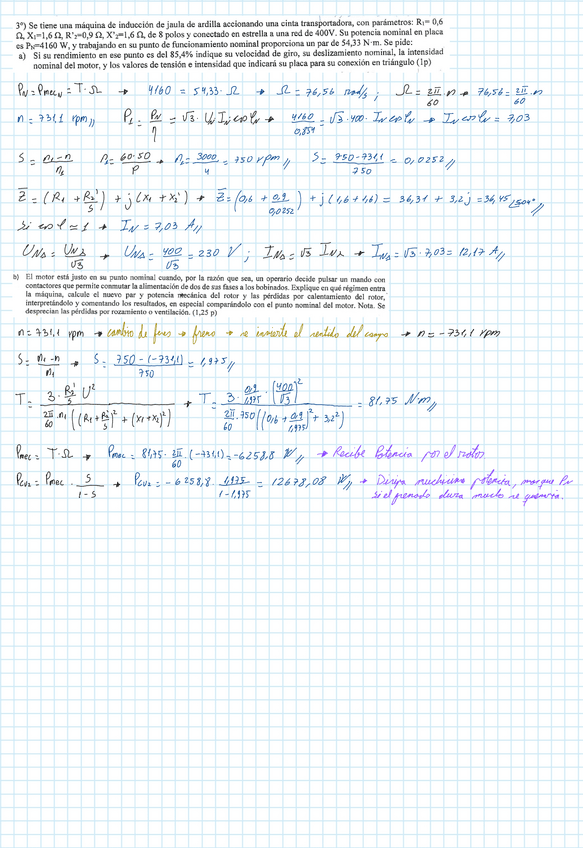 3º) Se tiene una máquina de inducción de jaula de ardilla accionando una cinta transportadora, con parámetros: R₁= 0,6
Ω, X₁=1,6 Ω, R'₂=0,9 Ω, X'₂=1,6 Ω, de 8 polos y conectado en estrella a una red de 400V. Su potencia nominal en placa
es Pₙ=4160 W, y trabajando en su punto de funcionamiento nominal proporciona un par de 54,33 N·m. Se pide:
a) Si su rendimiento en ese punto es del 85,4% indique su velocidad de giro, su deslizamiento nominal, la intensidad
nominal del motor, y los valores de tensión e intensidad que indicará su placa para su conexión en triángulo (1p)
P_N = P_mec_N = T·Ω → 4160 = 54,33·Ω → Ω = 76,56 rad/s ; Ω = 2π/60 · n → 76,56 = 2π/60 · n
n = 731,1 rpm // P₁ = P_N/η = √3 · U_N I_N cosφ_N → 4160/0,854 = √3 · 400 · I_N cosφ_N → I_N cosφ_N = 7,03
S = (n₁-n)/n₁ n₁ = 60·50/P → n₁ = 3000/4 = 750 rpm // S = (750-731,1)/750 = 0,0252 //
Z̄ = (R₁ + R₂'/S) + j(X₁ + X₂') → Z̄ = (0,6 + 0,9/0,0252) + j(1,6+1,6) = 36,31 + 3,2j = 36,45 ∠5,04° //
Si cosφ ≃ 1 → I_N = 7,03 A //
U_NΔ = U_Nλ/√3 → U_NΔ = 400/√3 = 230 V ; I_NΔ = √3 I_Nλ → I_NΔ = √3 · 7,03 = 12,17 A //
b) El motor está justo en su punto nominal cuando, por la razón que sea, un operario decide pulsar un mando con
contactores que permite conmutar la alimentación de dos de sus fases a los bobinados. Explique en qué régimen entra
la máquina, calcule el nuevo par y potencia mecánica del rotor y las pérdidas por calentamiento del rotor,
interpretándolo y comentando los resultados, en especial comparándolo con el punto nominal del motor. Nota. Se
desprecian las pérdidas por rozamiento o ventilación. (1,25 p)
n = 731,1 rpm → cambio de fases → freno → se invierte el sentido del campo → n = -731,1 rpm
S = (n₁-n)/n₁ → S = (750-(-731,1))/750 = 1,975 //
T = (3 · R₂'/S · U²)/(2π/60 · n₁ ((R₁+R₂'/S)² + (X₁+X₂')²)) → T = (3 · 0,9/1,975 · (400/√3)²)/(2π/60 · 750 ((0,6 + 0,9/1,975)² + 3,2²)) = 81,75 Nm //
P_mec = T·Ω → P_mec = 81,75 · 2π/60 · (-731,1) = -6258,8 W // → Recibe Potencia por el rotor
P_cu₂ = P_mec · S/(1-S) → P_cu₂ = -6258,8 · 1,975/(1-1,975) = 12678,08 W // → Disipa muchisima potencia, mas que P_N
si el frenado dura mucho se quemaría.